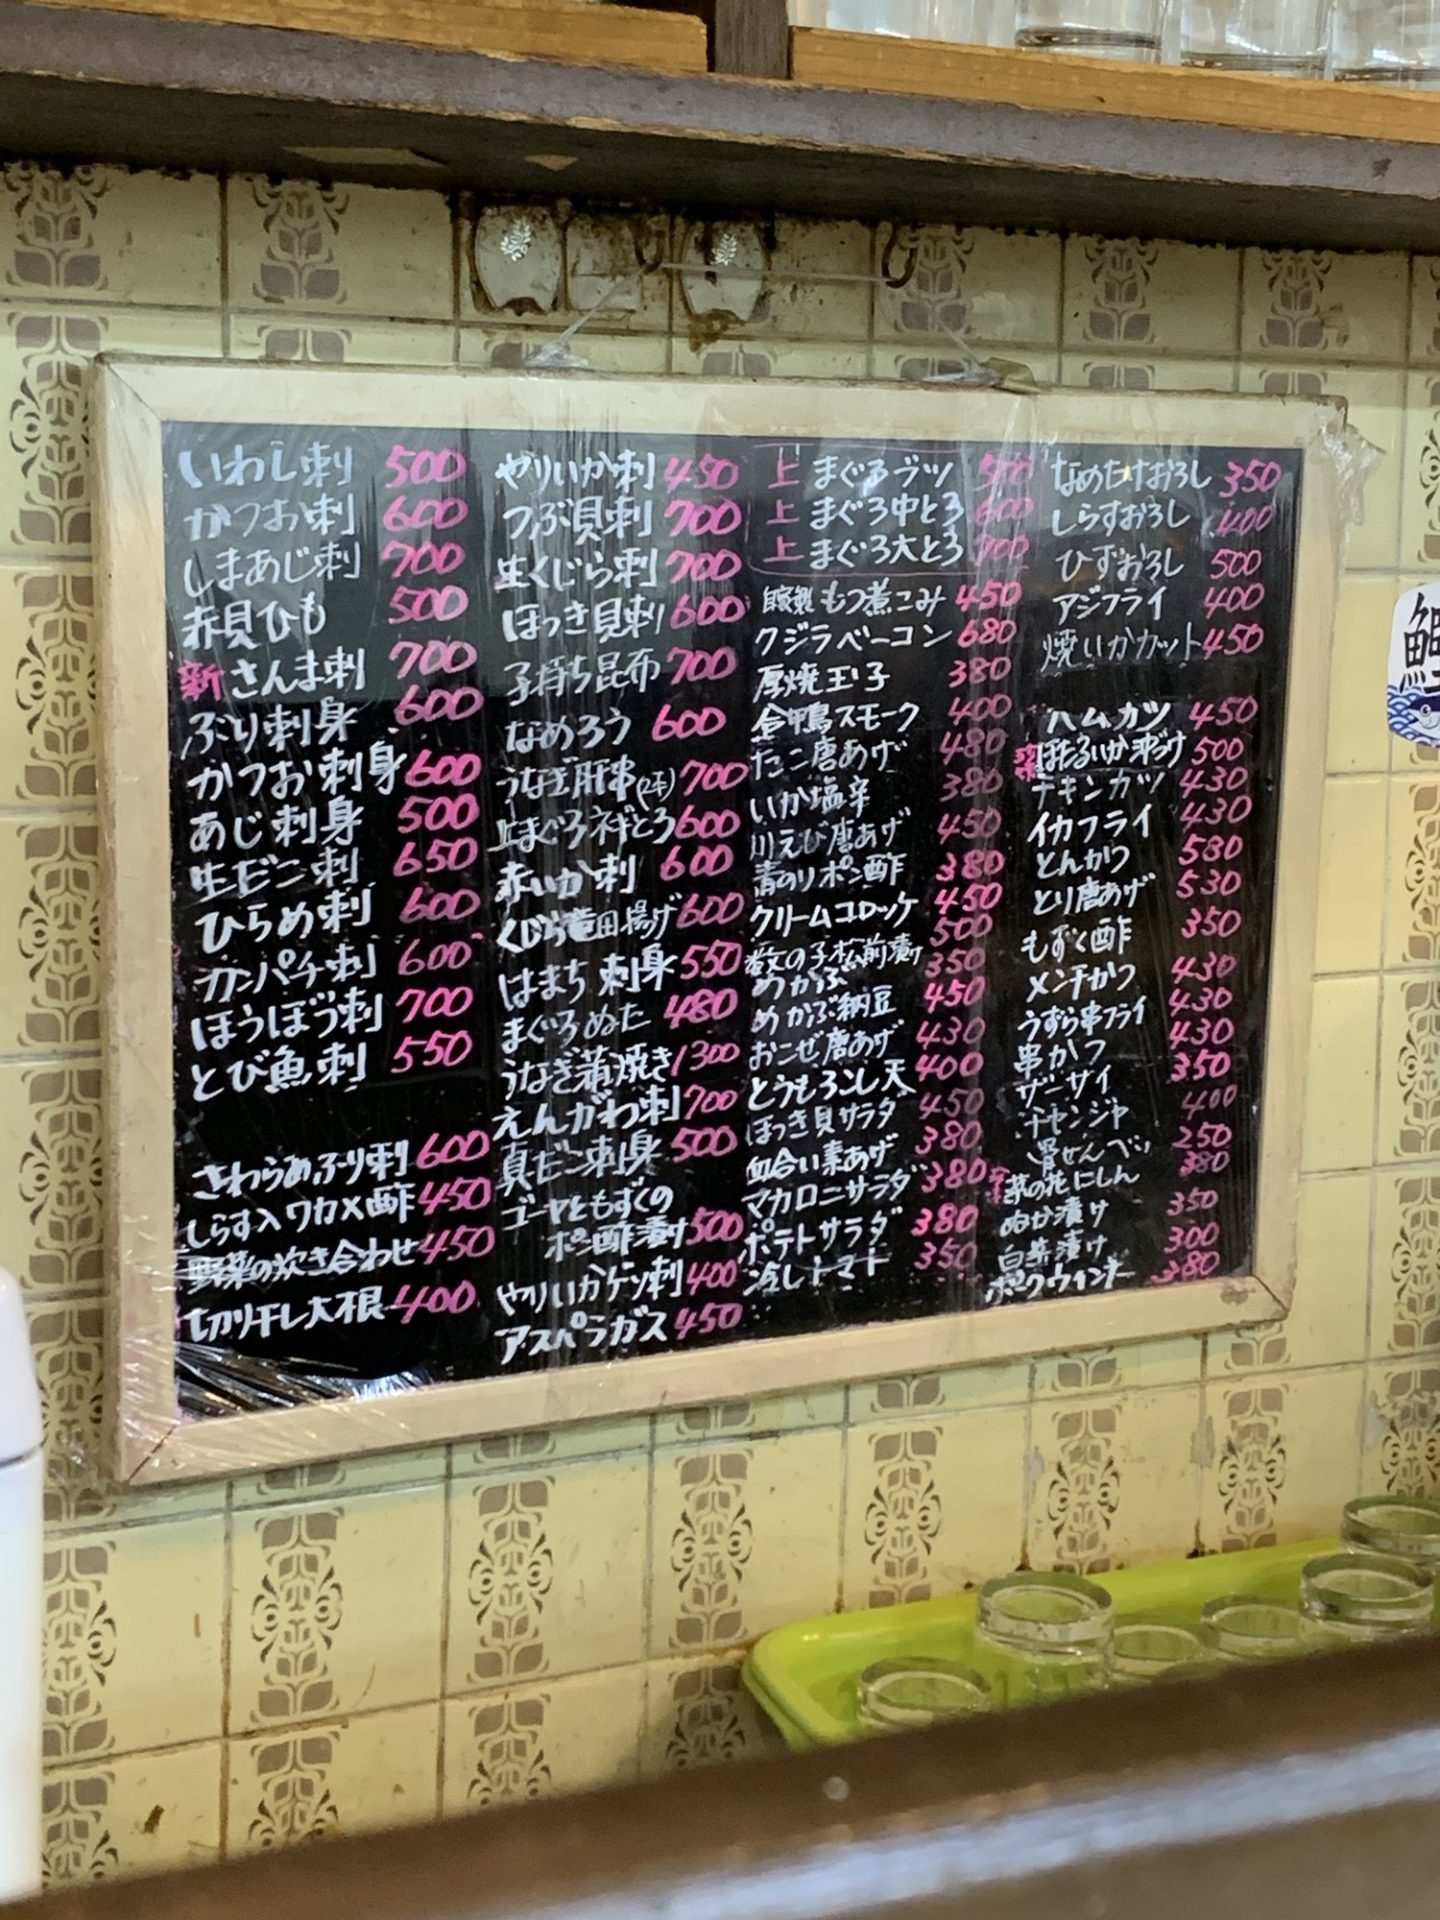 いわし刺 500
かつお刺 600
しまあじ刺 700
赤貝ひも 500
新 さんま刺 700
ぶり刺身 600
かつお刺身 600
あじ刺身 500
生だこ刺 650
ひらめ刺 600
カンパチ刺 600
ほうぼう刺 700
とび魚刺 550
さわらあぶり刺 600
しらす入ワカメ酢 450
野菜の炊き合わせ 450
切り干し大根 400
やりいか刺 450
つぶ貝刺 700
生くじら刺 700
ほっき貝刺 600
子持ち昆布 700
なめろう 600
うなぎ肝串(2本) 700
上まぐろネギとろ 600
赤いか刺 600
くじら竜田揚げ 600
はまち刺身 550
まぐろぬた 480
うなぎ蒲焼き 1300
えんがわ刺 700
真だこ刺身 500
ゴーヤともずくの
ポン酢漬け 500
やりいかゲソ刺 400
アスパラガス 450
上 まぐろブツ 500
上 まぐろ中とろ 600
上 まぐろ大とろ 700
自家製もつ煮こみ 450
クジラベーコン 680
厚焼玉子 380
合鴨スモーク 400
たこ唐あげ 480
いか塩辛 380
川えび唐あげ 450
青のりポン酢 380
クリームコロッケ 450
数の子松前漬け 500
めかぶ 350
めかぶ納豆 450
おこぜ唐あげ 430
とうもろこし天 400
ほっき貝サラダ 450
血合い素あげ 380
マカロニサラダ 380
ポテトサラダ 380
冷しトマト 350
なめたけおろし 350
しらすおろし 400
ひずおろし 500
アジフライ 400
焼いかカット 450
ハムカツ 450
ほたるいか沖づけ 500
チキンカツ 430
イカフライ 430
とんかつ 580
とり唐あげ 530
もずく酢 350
メンチかつ 430
うずら串フライ 430
串かつ 430
ザーサイ 350
チャンジャ 400
骨せんべい 250
菜の花にしん 380
ぬか漬け 350
白菜漬け 300
ポークウィンナー 380